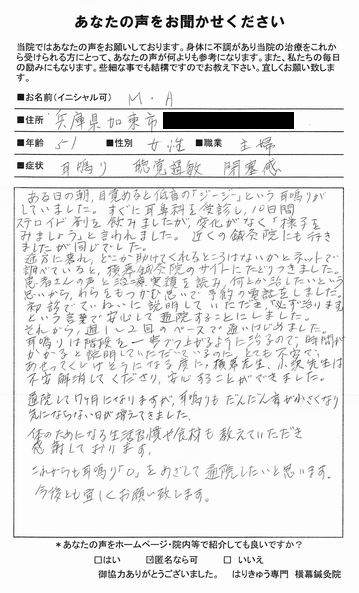 あなたの声をお聞かせください
当院ではあなたの声をお願いしております。身体に不調があり当院の治療をこれか
ら受けられる方にとって、あなたの声が何よりも参考になります。また、私たちの毎日
の励みにもなります。些細な事でも結構ですのでお教え下さい。宜しくお願い致しま
す。
■お名前(イニシャル可) M・A
■住所 兵庫県加東市
■年齢 51 ■性別 女性 ■職業 主婦
■症状 耳鳴り 聴覚過敏 閉塞感
ある日の朝、目覚めると低音の「ジージー」という耳鳴りが
していました。すぐに耳鼻科を受診し、10日間
ステロイド剤を飲みましたが、変化がなく「様子を
みましょう」と言われました。近くの鍼灸院にも行き
ましたが同じでした。
途方に暮れ、どこか助けてくれるところはないかとネットで
調べていると、横幕鍼灸院のサイトにたどりつきました。
患者さんの声と治療実績を読み、何とか治したいという
思いから、わらをもつかむ思いで、予約の電話をしました。
初診でていねいに説明していただき「必ず治ります」
という言葉で安心して通院することにしました。
それから、週1〜2回のペースで通いはじめました。
耳鳴りは階段を一歩ずつ上がるように治るので、時間が
かかると説明していただいているのに、とても不安で、
あせってくじけそうになる度に、横幕先生、小泉先生は
不安解消してくださり、安心することができました。
通院して7ヶ月になりますが、耳鳴りもだんだん音が小さくなり
気にならない日が増えてきました。
体のためになる生活習慣や食材も教えていただき
感謝しております。
これからも耳鳴り「0」をめざして通院したいと思います。
今後とも宜しくお願い致します。
*あなたの声をホームページ・院内等で紹介しても良いですか?
□はい ☑匿名なら可 □ いいえ
御協力ありがとうございました。 はりきゅう専門 横幕鍼灸院